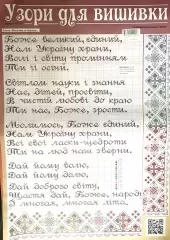 Узори для вишивки
Боже великий, єдиний,
Нам Україну храни,
Волі і світу промінням
Ти її осіни.
Світлом науки і знання
Нас, дітей, просвіти,
В чистій любові до краю
Ти нас, Боже, зрости.
Молимось, Боже єдиний,
Нам Україну храни,
Всі свої ласки-щедроти
Ти на люд наш зверни.
Дай йому волю,
Дай йому долю,
Дай доброго світу,
Щастя дай, Боже, народу
І многая, многая літа,